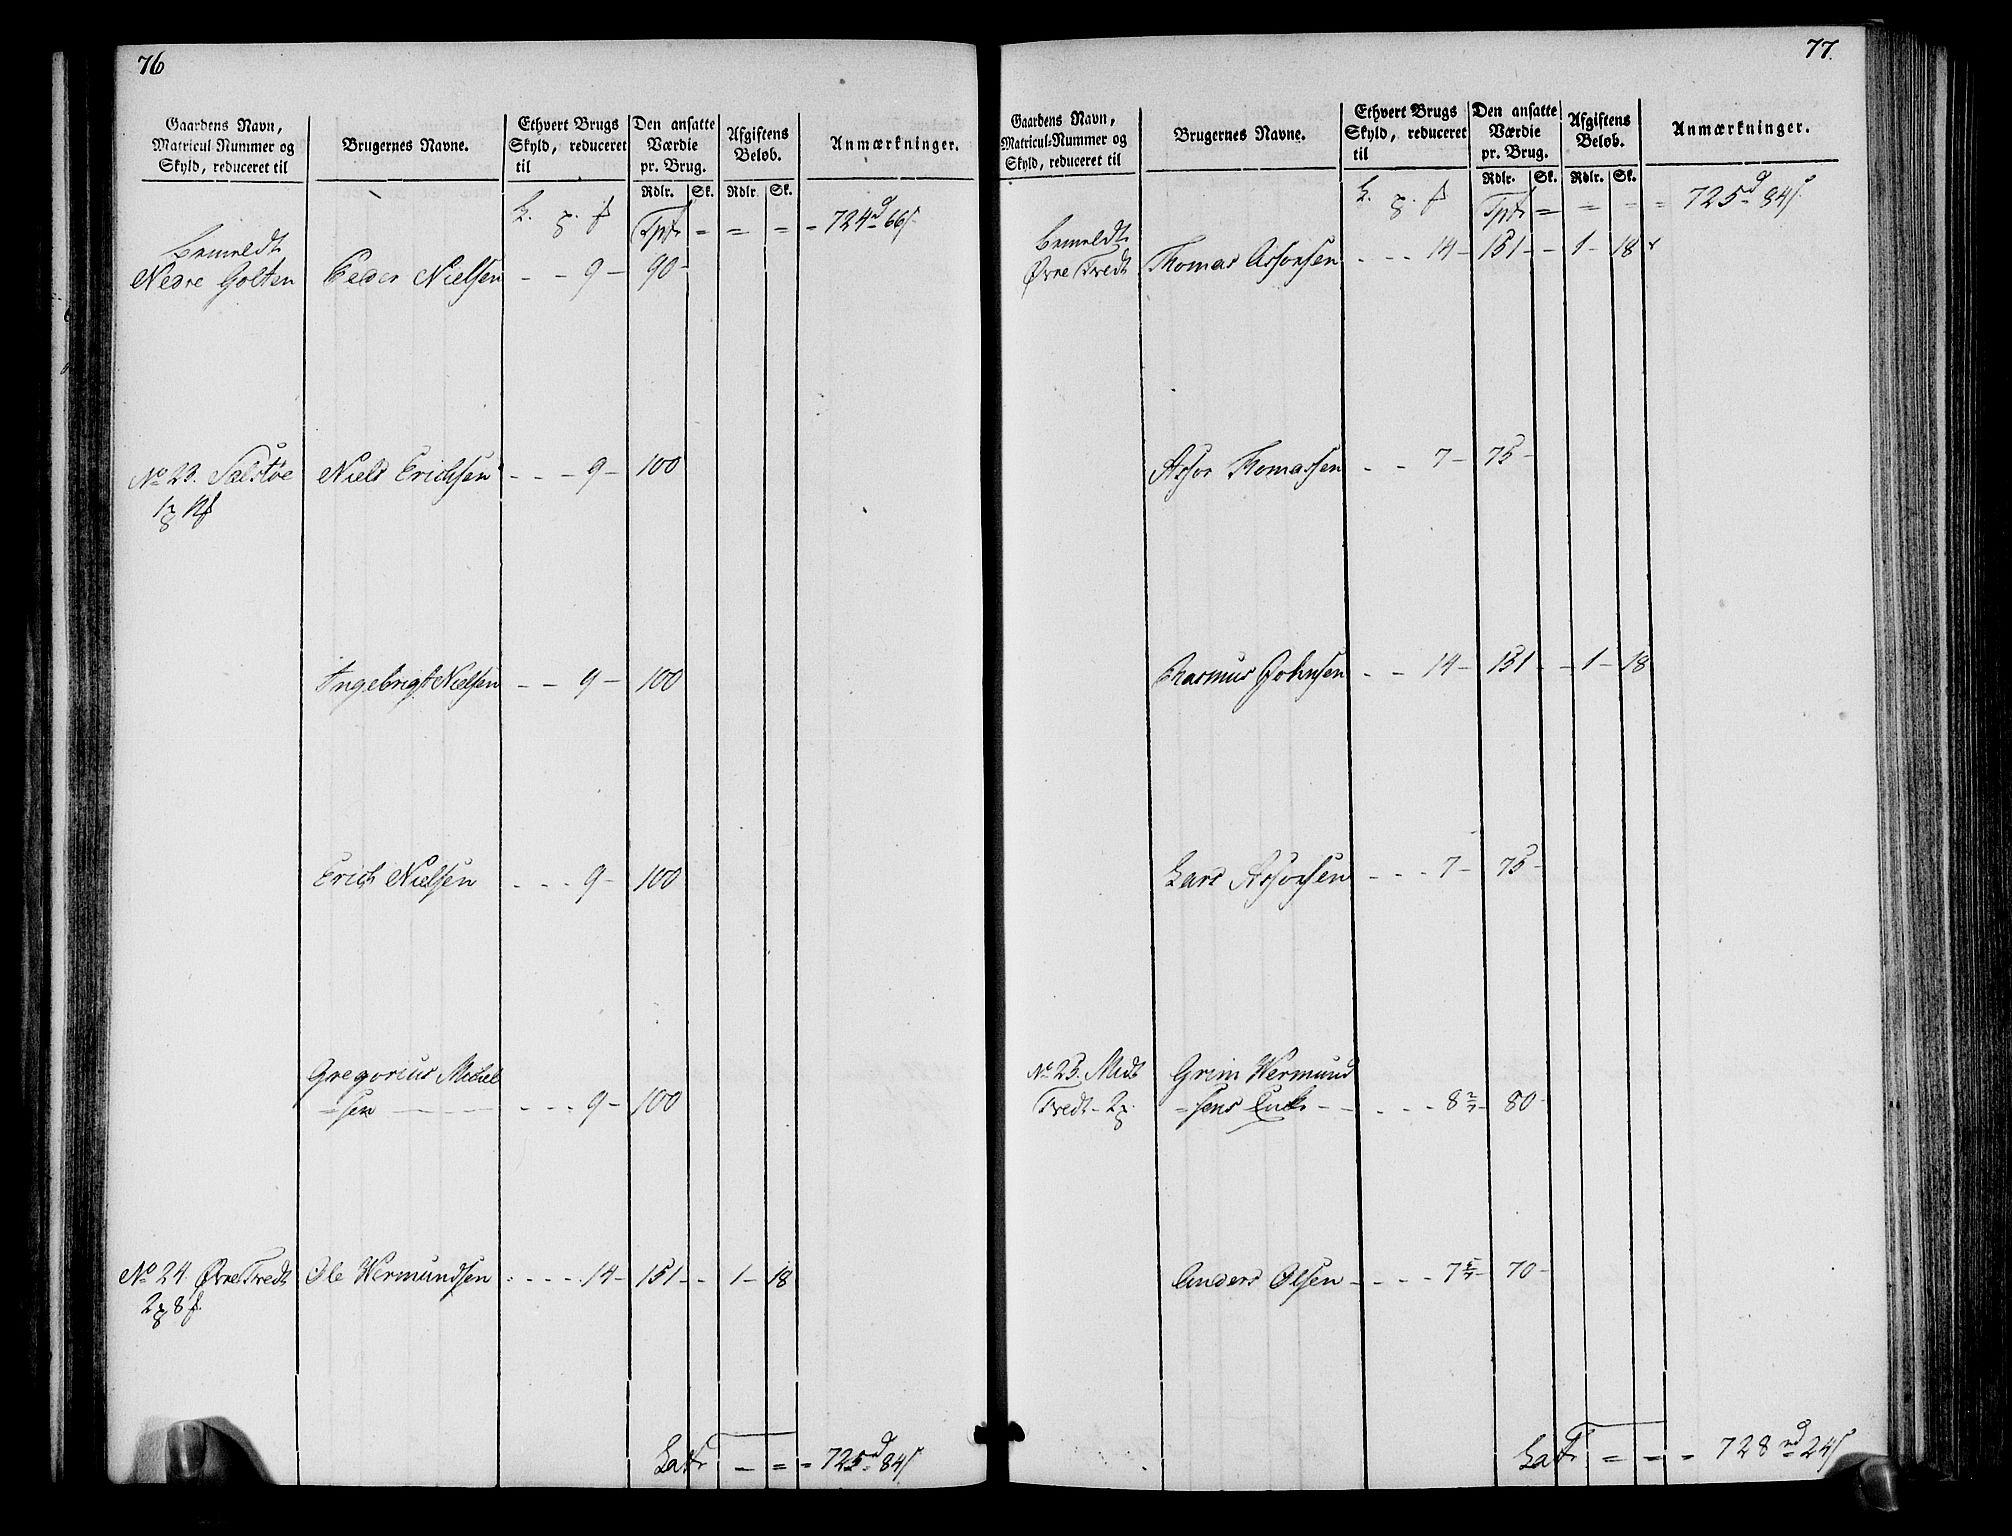 76
Gaardens Navn,
Matricul Nummer og
Skyld, reduceret til
Brugernes Navne.
Ethvert Brugs
Skyld, reduceret
til
Den ansatte
Værdie
pr. Brug.
Afgiftens
Beløb.
Anmærkninger.
Rdlr. Sk. Rdlr. Sk.
Tptr = = = = 724 d 66 s
bemeldte
Nedre Golten Peder Nielsen - - 9 - 90 -
No 23. Salstøe Niels Erichsen - - - 9 - 100
Ingebrigt Nielsen - - 9 - 100
Erich Nielsen - - - 9 - 100
Gregorius Michel
-sen - - - 9 - 100
No 24. Øvre Tvedt Ole Wermundsen - - - - 14 - 151 - - 1 - 18
Latr - = = 725 d 84 s
77.
Gaardens Navn,
Matricul-Nummer og
Skyld, reduceret til
Brugernes Navne.
Ethvert Brugs
Skyld, reduceret
til
Den ansatte
Værdie
pr. Brug.
Afgiftens
Beløb.
Anmærkninger.
Rdlr. Sk. Rdlr. Sk.
Tptr = = - = 725 d 84 s
bemeldte
Øvre Tvedt Thomas Assorsen - - - 14 - 151 - - 1 - 18
Assor Thomassen - - 7 - 75 -
Rasmus Johnsen - - 14 - 151 - - 1 - 18
Lars Assorsen - - - 7 - 75 -
No 25. Midt Grim Wermund
Tvedt - 2 -sens Enke - - - - 8 2/7 - 80 -
Anders Olsen - - - - 7 5/7 - 70 -
Latr = - = 728 rd 24 s